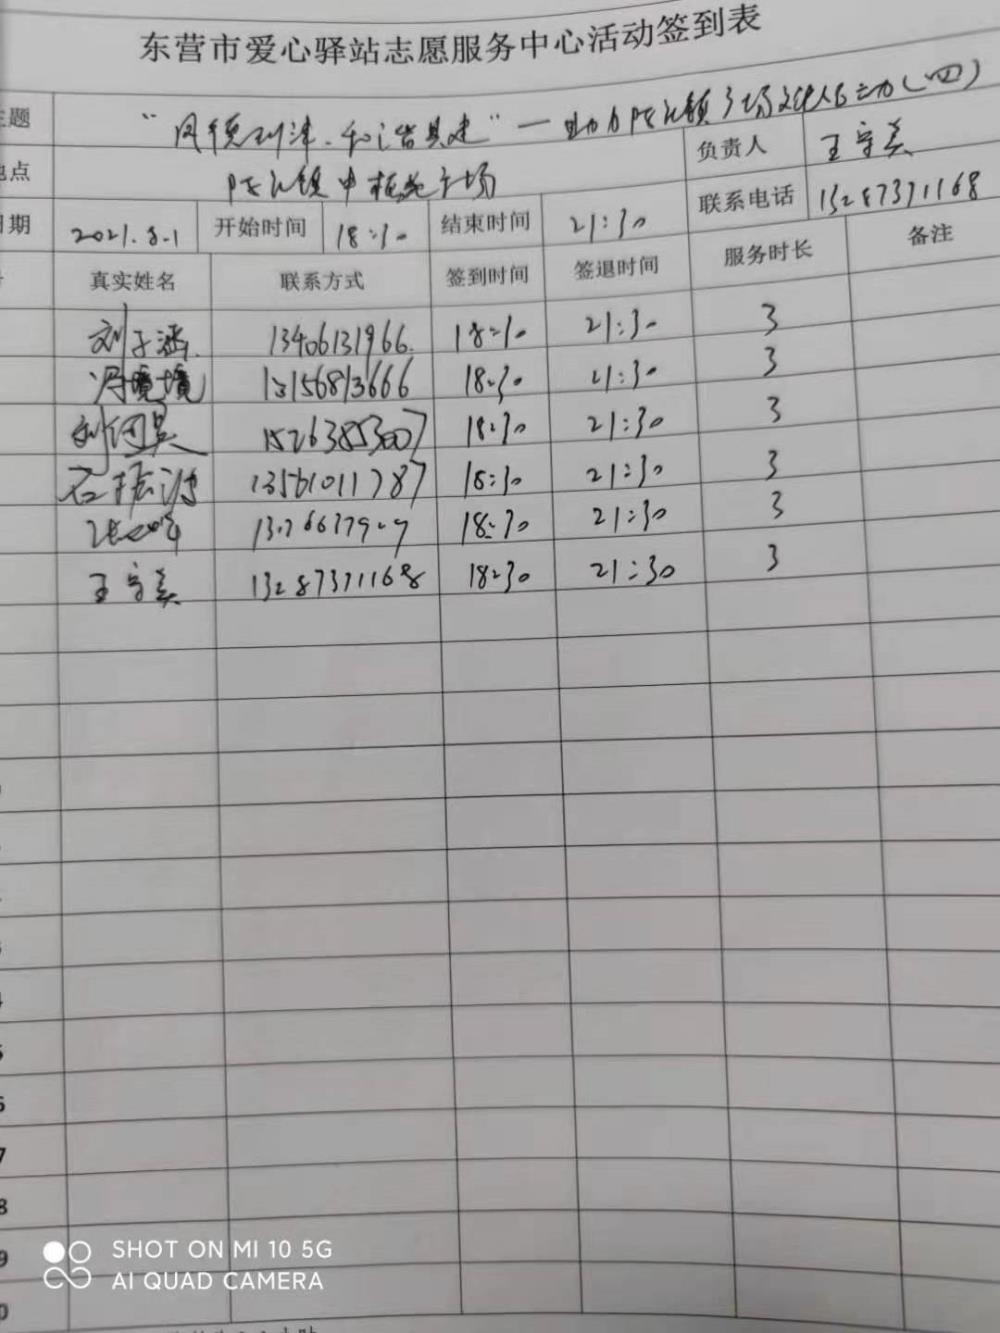 东营市爱心驿站志愿服务中心活动签到表
主题 "风领利津.和谐共建"—助力陈庄镇广场文化活动(四)
地点 陈庄镇中心广场 负责人 王守美
日期 2021.8.1 开始时间 18:30 结束时间 21:30 联系电话 13287371168
真实姓名 联系方式 签到时间 签退时间 服务时长 备注
刘子涵 13406131966 18:30 21:30 3
冯 13156813666 18:30 21:30 3
刘 15263853007 18:30 21:30 3
石振 13561011787 18:30 21:30 3
18:30 21:30 3
王守美 13287371168 18:30 21:30 3
6
7
8
9
0
SHOT ON MI 10 5G
AI QUAD CAMERA